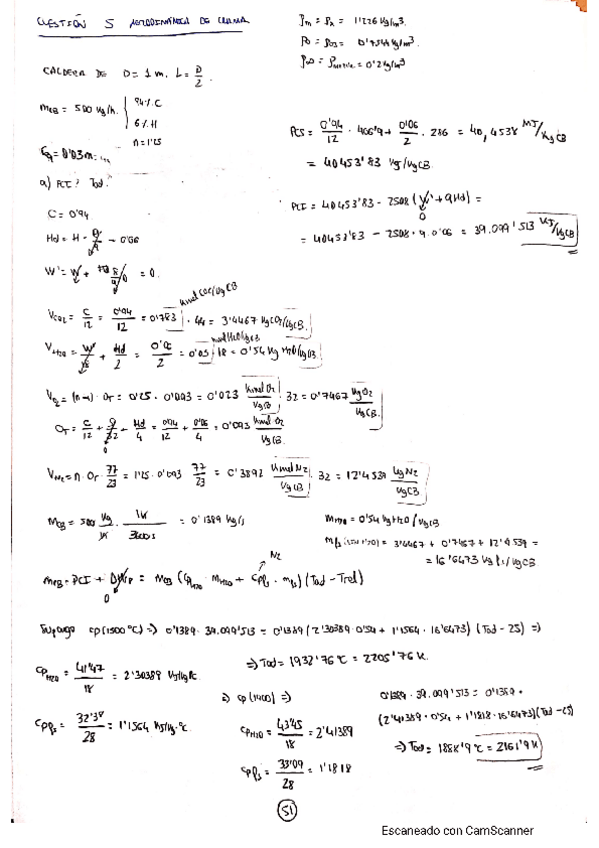 CUESTIÓN 5 AERODINÁMICA DE LLAMA
ρm = ρa = 1'226 kg/m³.
ρ0 = ρ03 = 0'7544 kg/m³.
CALDERA DE D = 1 m. L = D/2.
mCB = 500 kg/h. { 94% C
6% H
n = 1'25
a) PCI? Tad?
PCS = 0'94/12 · 466'9 + 0'06/2 · 286 = 40,4538 MJ/kgCB
= 40453'83 kJ/kgCB
PCI = 40453'83 - 2508 (W' + 9Hd) =
= 40453'83 - 2508 · 9 · 0'06 = 39.099'513 kJ/kgCB
C = 0'94
Hd = H - O/8 = 0'06
= 0.
VCO2 = C/12 = 0'94/12 = 0'783 kmol CO2/kgCB · 44 = 3'4467 kgCO2/kgCB.
VH2O = W'/18 + Hd/2 = 0'06/2 = 0'03 kmol H2O/kgCB · 18 = 0'54 kg H2O/kgCB
VO2 = (n-1) · OT = 0'25 · 0'093 = 0'023 kmol O2/kgCB · 32 = 0'7467 kgO2/kgCB.
OT = C/12 + O/32 + Hd/4 = 0'94/12 + 0'06/4 = 0'093 kmol O2/kgCB.
VN2 = n · OT · 77/23 = 1'25 · 0'093 · 77/23 = 0'3892 kmol N2/kgCB · 32 = 12'4539 kgN2/kgCB
mCB = 500 kg/h · 1h/3600s = 0'1389 kg/s
mH2O = 0'54 kg H2O/kgCB
= 3'4467 + 0'7467 + 12'4539 =
= 16'6473 kg
N2
mCB · PCI + = mCB (cpH2O · mH2O + cpfs · mfs) (Tad - Tref)
0
Supongo cp (1500 °C) => 0'1389 · 39.099'513 = 0'1389 (2'30389 · 0'54 + 1'1564 · 16'6473) (Tad - 25) =>
cpH2O = 41'47/18 = 2'30389 kJ/kg°C.
=> Tad = 1932'76 °C = 2205'76 K.
cpfs = 32'38/28 = 1'1564 kJ/kg·°C
=>
cpH2O = 43'45/18 = 2'41389
0'1389 · 39.099'513 = 0'1389 ·
(2'41389 · 0'54 + 1'1818 · 16'6473) (Tad - 25)
cpfs = 33'09/28 = 1'1818
=> Tad = 1888'9 °C = 2161'9 K
51
Escaneado con CamScanner